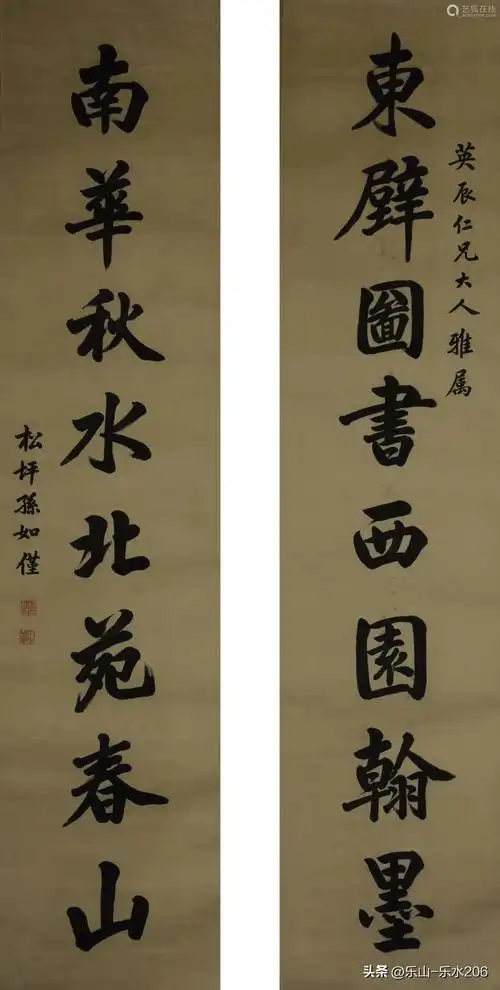 英辰仁兄大人雅属
東壁圖書西園翰墨
南華秋水北苑春山
松坪孫如僅
艺狐在线
头条 @乐山-乐水206